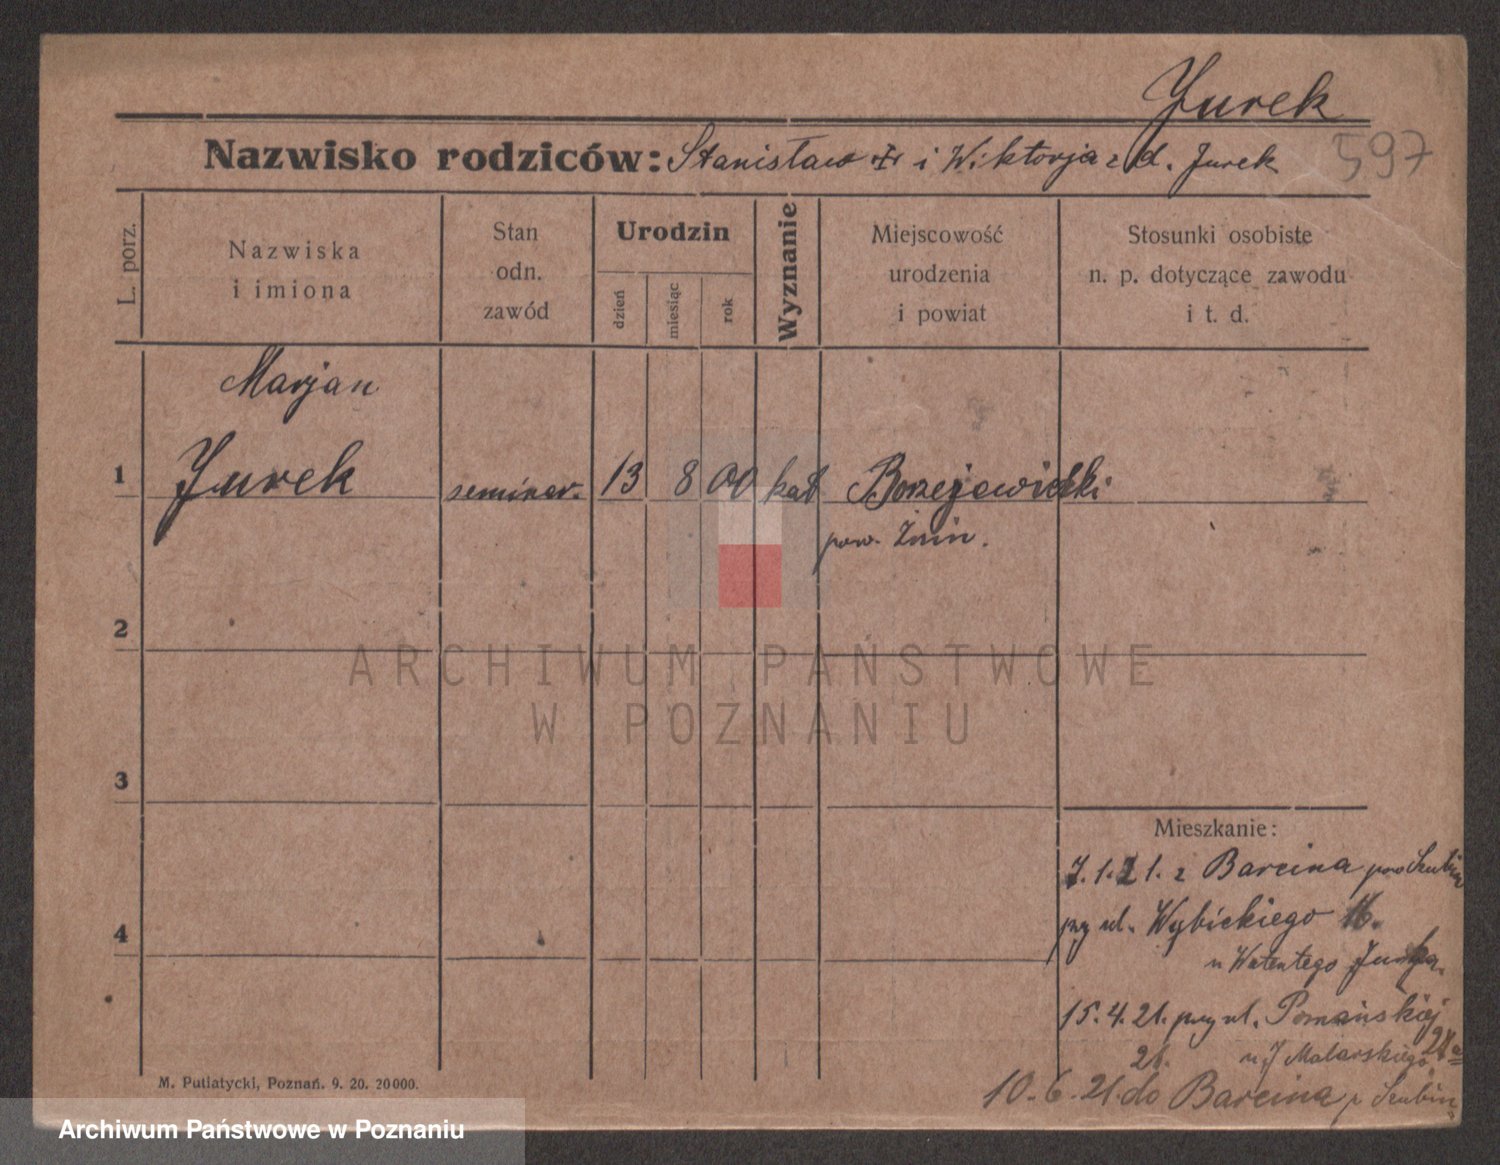 Jurek
597
Nazwisko rodziców: Stanisław i Wiktorja z d. Jurek
L. porz.
Nazwiska
i imiona
Stan
odn.
zawód
Urodzin
dzień
miesiąc
rok
Wyznanie
Miejscowość
urodzenia
i powiat
Stosunki osobiste
n. p. dotyczące zawodu
i t. d.
Marjan
1 Jurek seminar. 13 8 00 kat
pow. Żnin.
2
ARCHIWUM PAŃSTWOWE
W POZNANIU
3
Mieszkanie:
7.1.21. z Barcina pow Szubin
4
przy ul. Wybickiego 16.
u Jurka.
15.4.21. przy ul. Poznańskiej
21. u J Malarskiego
10.6.21. do Barcina p Szubin
M. Putiatycki, Poznań. 9. 20. 20000.
Archiwum Państwowe w Poznaniu